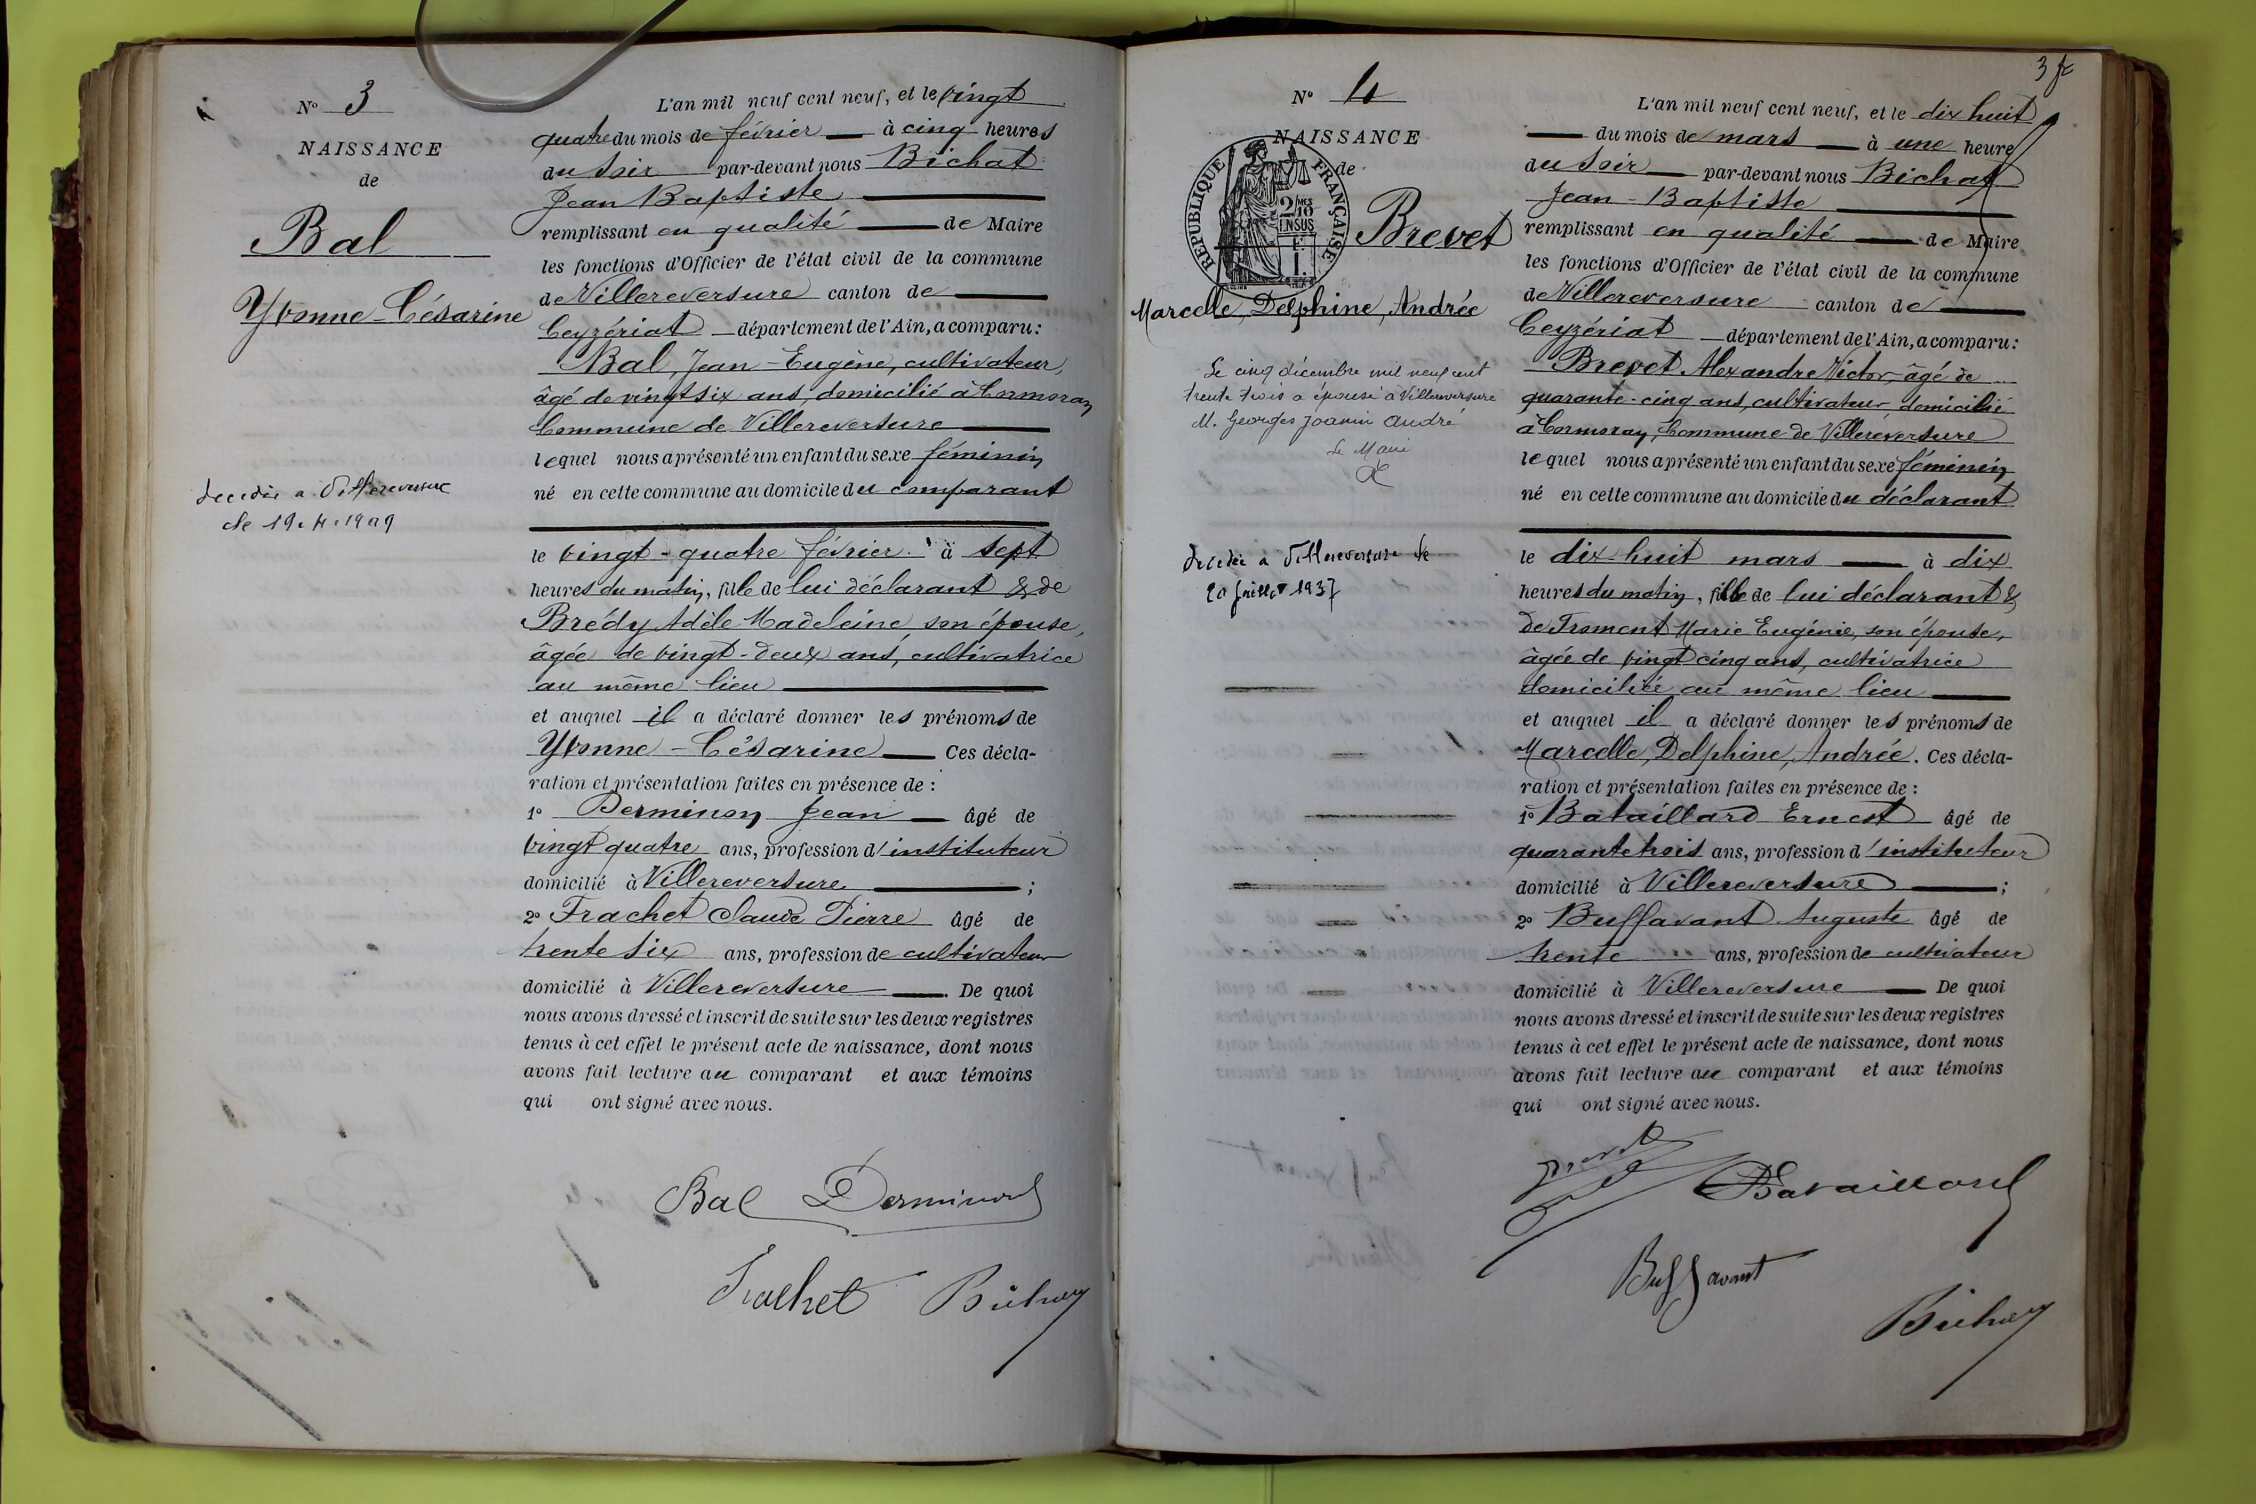 N° 3
NAISSANCE
de
Bal
Yvonne-Césarine
decedée a Villereversure
le 19.4.1909
L'an mil neuf cent neuf, et le vingt
quatre du mois de février à cinq heures
du soir par-devant nous Bichat
Jean Baptiste
remplissant en qualité de Maire
les fonctions d'Officier de l'état civil de la commune
de Villereversure canton de
Ceyzériat département de l'Ain, a comparu:
Bal, Jean-Eugène, cultivateur,
âgé de vingt six ans, domicilié à Cormoran
Commune de Villereversure
lequel nous a présenté un enfant du sexe féminin
né en cette commune au domicile du comparant
le vingt-quatre février à sept
heures du matin, fille de lui déclarant & de
Brédy Adèle Madeleine son épouse,
âgée de vingt-deux ans, cultivatrice
au même lieu
et auquel il a déclaré donner les prénoms de
Yvonne-Césarine Ces décla-
ration et présentation faites en présence de :
1° Derminon Jean âgé de
vingt quatre ans, profession d'instituteur
domicilié à Villereversure ;
2° Frachet Claude Pierre âgé de
trente six ans, profession de cultivateur
domicilié à Villereversure. De quoi
nous avons dressé et inscrit de suite sur les deux registres
tenus à cet effet le présent acte de naissance, dont nous
avons fait lecture au comparant et aux témoins
qui ont signé avec nous.
Bal Derminon
Frachet Bichat
3 fc
N° 4
NAISSANCE
de
REPUBLIQUE FRANÇAISE
2/10 EN SUS
Brevet
Marcelle, Delphine, Andrée
Le cinq décembre mil neuf cent
trente trois a épousé à Villereversure
M. Georges Joanin André
Le Maire
decedée a Villereversure le
20 Juillet 1937
L'an mil neuf cent neuf, et le dix huit
du mois de mars à une heure
du soir par-devant nous Bichat
Jean-Baptiste
remplissant en qualité de Maire
les fonctions d'Officier de l'état civil de la commune
de Villereversure canton de
Ceyzériat département de l'Ain, a comparu:
Brevet Alexandre Victor, âgé de
quarante-cinq ans, cultivateur, domicilié
à Cormoran, Commune de Villereversure
lequel nous a présenté un enfant du sexe féminin
né en cette commune au domicile du déclarant
le dix-huit mars à dix
heures du matin, fille de lui déclarant &
de Froment Marie Eugénie, son épouse,
âgée de vingt cinq ans, cultivatrice
domiciliée au même lieu
et auquel il a déclaré donner les prénoms de
Marcelle, Delphine, Andrée. Ces décla-
ration et présentation faites en présence de :
1° Bataillard Ernest âgé de
quarante trois ans, profession d'instituteur
domicilié à Villereversure ;
2° Buffavant Auguste âgé de
trente ans, profession de cultivateur
domicilié à Villereversure De quoi
nous avons dressé et inscrit de suite sur les deux registres
tenus à cet effet le présent acte de naissance, dont nous
avons fait lecture au comparant et aux témoins
qui ont signé avec nous.
Brevet Bataillard
Buffavant
Bichat